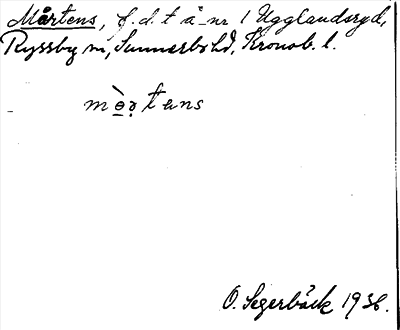 Mårtens, f.d. t å nr 1 Ugglandsryd,
Ryssby sn, Sunnerbo hd, Kronob. l.
mòrtens
O. Segerbäck 1936.